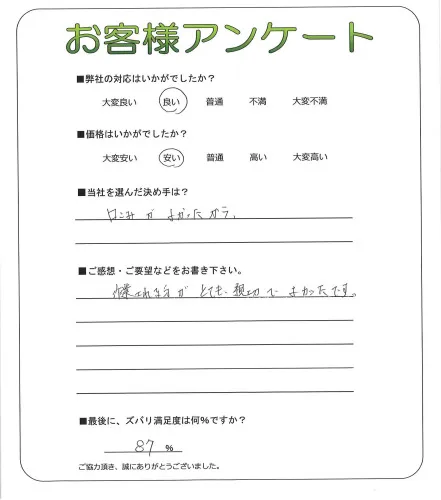 お客様アンケート
■弊社の対応はいかがでしたか?
大変良い 良い 普通 不満 大変不満
■価格はいかがでしたか?
大変安い 安い 普通 高い 大変高い
■当社を選んだ決め手は?
口こみがよかったから。
■ご感想・ご要望などをお書き下さい。
作業がとても親切でよかったです。
■最後に、ズバリ満足度は何%ですか?
87 %
ご協力頂き、誠にありがとうございました。